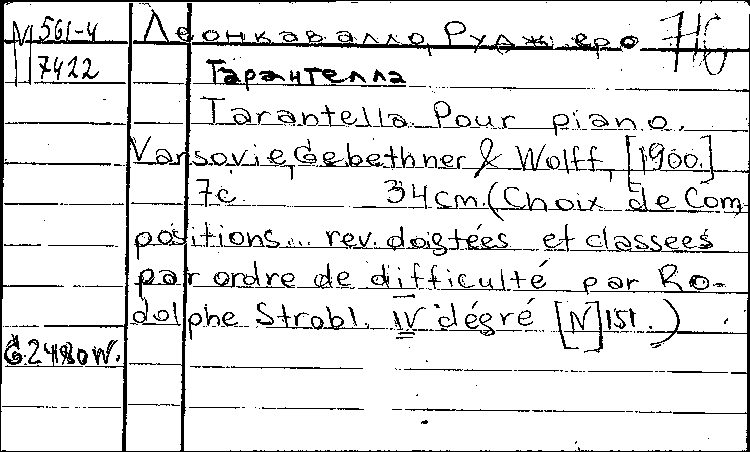 М 561-4
7422
Леонкавалло, Руджиеро
Тарантелла
Tarantella. Pour piano.
Varsovie, Gebethner & Wolff, [1900.]
7c. 34cm. (Choix de Com-
positions... rev. doigtées et classees
par ordre de difficulté par Ro-
dolphe Strobl. IV dégré [N]151.)
G.2480W.